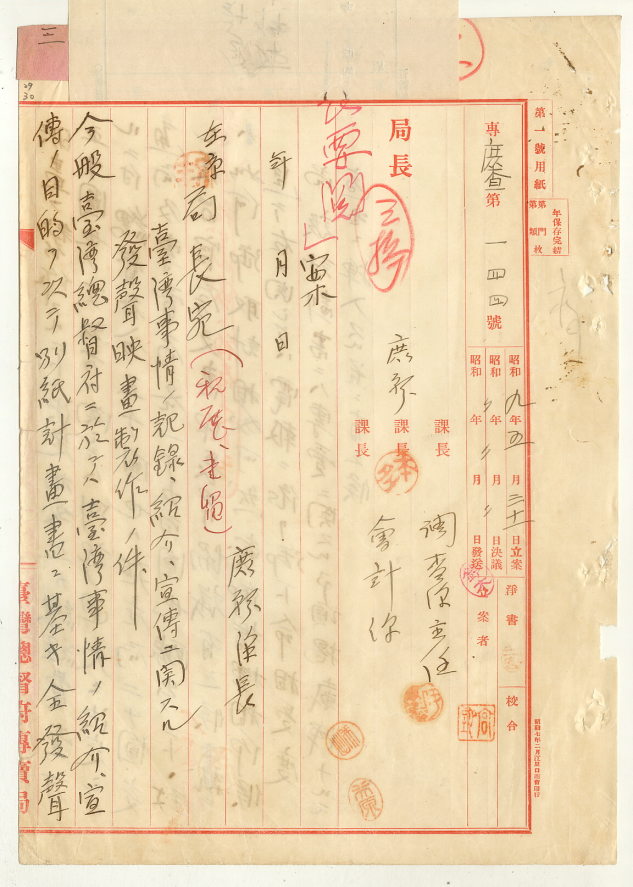 三
29
30
第一號用紙
年保存完結
第 門
第 類 枚
專庶查第一四四號
昭和九年五月三十一日立案
昭和〃年〃月〃日決議
昭和〃年〃月〃日發送
淨書
校合
立案者
昭和七年二月江里口商會印行
調查係主任
會計係
庶務
課長
課長
課長
局長
要閱
案
年 月 日
庶務係長
東京局長宛
臺灣事情ノ記録、紹介、宣傳ニ関スル
發聲映畫製作ノ件
今般臺灣總督府ニ於テハ臺灣事情ノ紹介、宣
傳ノ目的ヲ以テ別紙計畫書ニ基キ全發聲
臺灣總督府專賣局